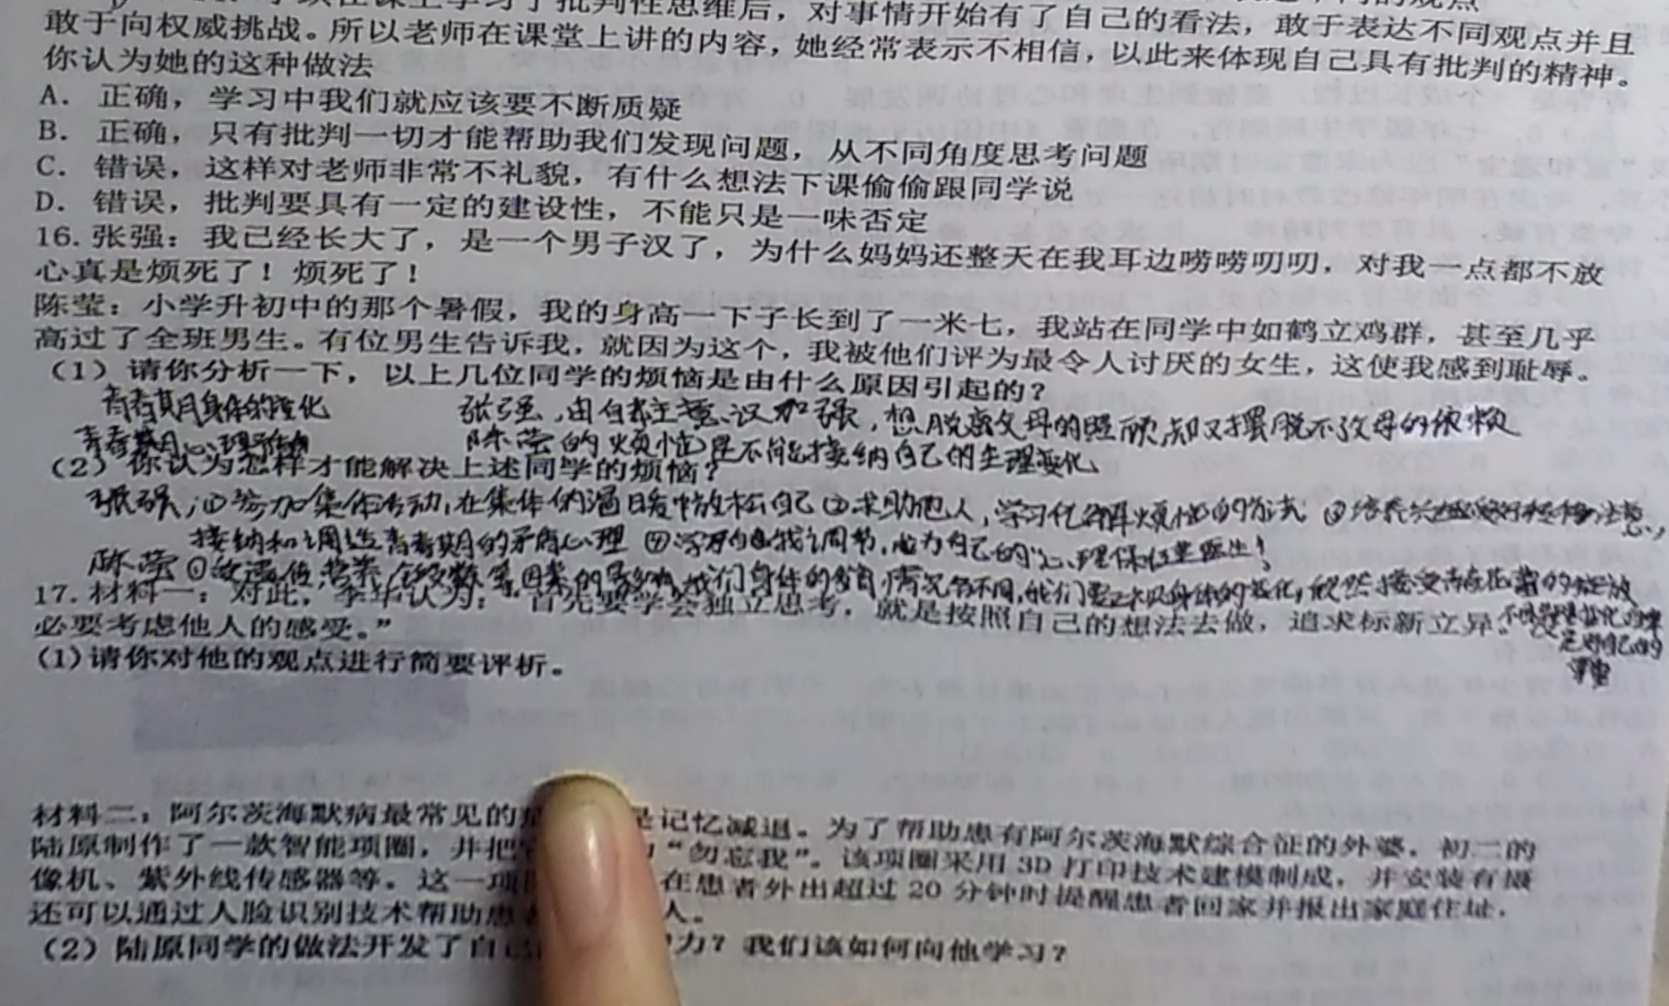 习了批判性思维后，对事情开始有了自己的看法，敢于表达不同观点并且
敢于向权威挑战。所以老师在课堂上讲的内容，她经常表示不相信，以此来体现自己具有批判的精神。
你认为她的这种做法
A. 正确，学习中我们就应该要不断质疑
B. 正确，只有批判一切才能帮助我们发现问题，从不同角度思考问题
C. 错误，这样对老师非常不礼貌，有什么想法下课偷偷跟同学说
D. 错误，批判要具有一定的建设性，不能只是一味否定
16. 张强：我已经长大了，是一个男子汉了，为什么妈妈还整天在我耳边唠唠叨叨，对我一点都不放
心真是烦死了！烦死了！
陈莹：小学升初中的那个暑假，我的身高一下子长到了一米七，我站在同学中如鹤立鸡群，甚至几乎
高过了全班男生。有位男生告诉我，就因为这个，我被他们评为最令人讨厌的女生，这使我感到耻辱。
（1）请你分析一下，以上几位同学的烦恼是由什么原因引起的？
青春期身体的变化 张强，由自主意识加强，想脱离父母的照顾却又摆脱不了父母的依赖
青春期心理 陈莹的烦恼是不能接纳自己的生理变化
（2）你认为怎样才能解决上述同学的烦恼？
张强，①参加集体活动，在集体的温暖中放松自己 ②求助他人，学习化解烦恼的方法 ③培养兴趣爱好转移注意，
接纳和调适青春期的矛盾心理 ④学习自我调节，成为自己的"心理保健医生！
陈莹 ①的影响，我们身体的发育情况各不同，我们要正视身体的变化，欣然接受青春花蕾的绽放
17. 材料一：对此，李华认为："首先要学会独立思考，就是按照自己的想法去做，追求标新立异。
不因
必要考虑他人的感受。"
自己的
(1)请你对他的观点进行简要评析。
材料二：阿尔茨海默病最常见的 是记忆减退。为了帮助患有阿尔茨海默综合征的外婆，初二的
陆原制作了一款智能项圈，并把 "勿忘我"。该项圈采用 3D 打印技术建模制成，并安装有摄
像机、紫外线传感器等。这一项 在患者外出超过 20 分钟时提醒患者回家并报出家庭住址，
还可以通过人脸识别技术帮助患 人。
（2）陆原同学的做法开发了自己 力？我们该如何向他学习？